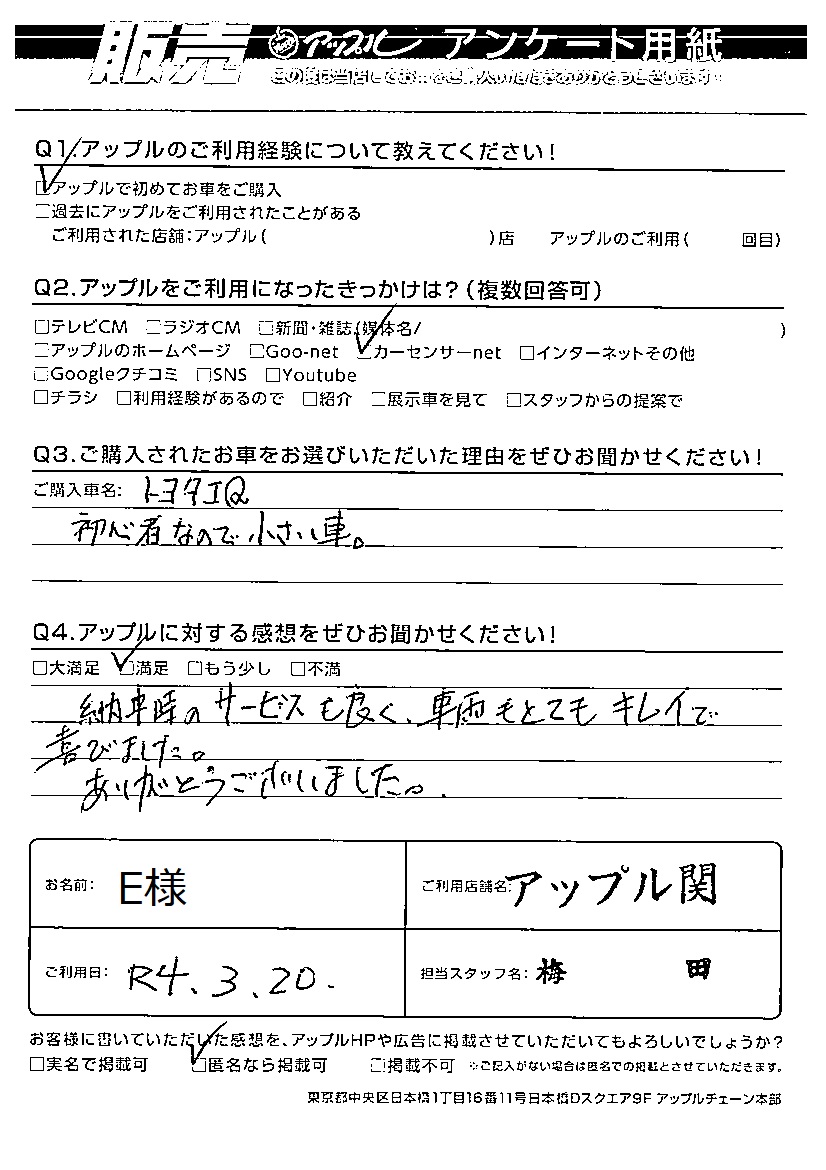 販売 アップル アンケート用紙
この度は当店にてお車をご購入いただきありがとうございます
Q1.アップルのご利用経験について教えてください!
☑アップルで初めてお車をご購入
□過去にアップルをご利用されたことがある
ご利用された店舗:アップル( )店 アップルのご利用( 回目)
Q2.アップルをご利用になったきっかけは?(複数回答可)
□テレビCM □ラジオCM □新聞・雑誌(媒体名/ )
□アップルのホームページ □Goo-net ☑カーセンサーnet □インターネットその他
□Googleクチコミ □SNS □Youtube
□チラシ □利用経験があるので □紹介 □展示車を見て □スタッフからの提案で
Q3.ご購入されたお車をお選びいただいた理由をぜひお聞かせください!
ご購入車名: トヨタIQ
初心者なので小さい車。
Q4.アップルに対する感想をぜひお聞かせください!
□大満足 ☑満足 □もう少し □不満
納車時のサービスも良く、車両もとてもキレイで
喜びました。
ありがとうございました。
お名前: E様 ご利用店舗名:アップル関
ご利用日: R4.3.20. 担当スタッフ名: 梅田
お客様に書いていただいた感想を、アップルHPや広告に掲載させていただいてもよろしいでしょうか?
□実名で掲載可 ☑匿名なら掲載可 □掲載不可 ※ご記入がない場合は匿名での掲載とさせていただきます。
東京都中央区日本橋1丁目16番11号日本橋Dスクエア9F アップルチェーン本部